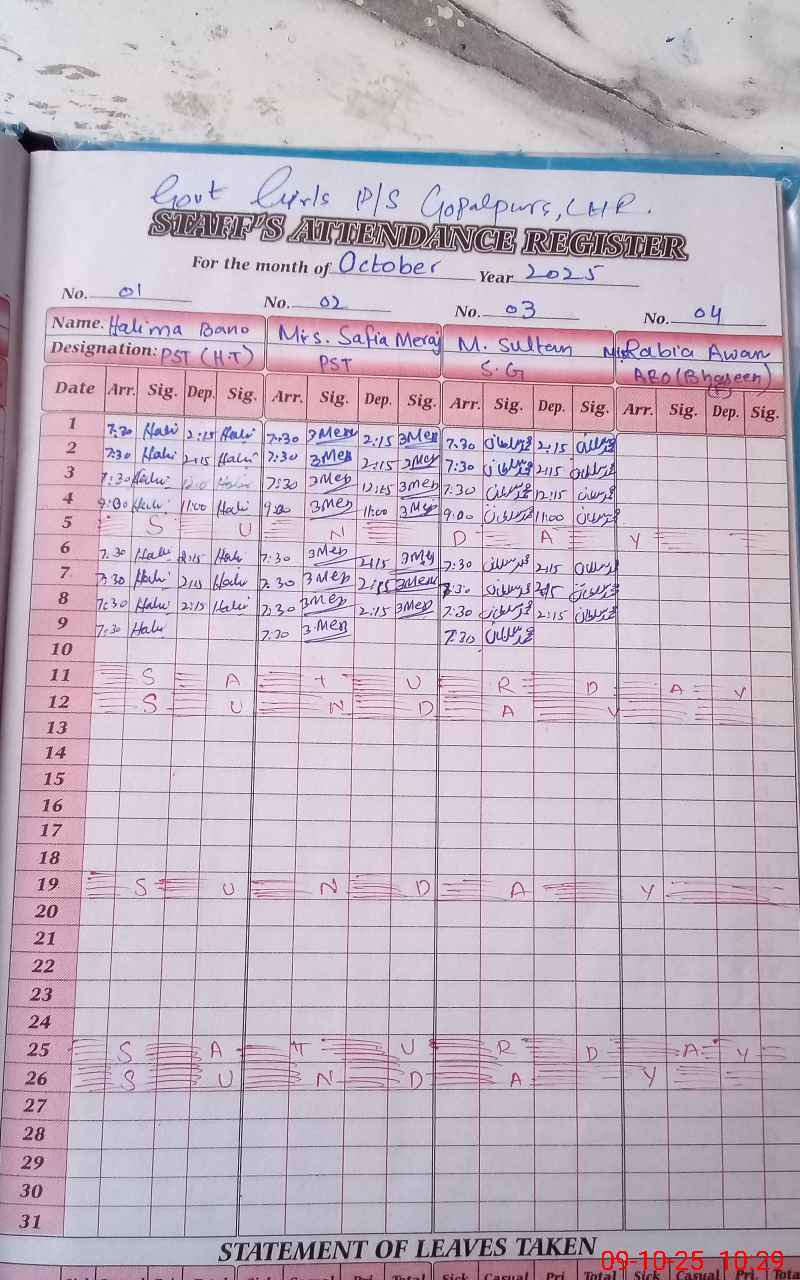 Govt Girls P/S Gopalpura, LHR.
STAFF'S ATTENDANCE REGISTER
For the month of October Year 2025
No. 01 No. 02 No. 03 No. 04
Name. Halima Bano Mrs. Safia Meraj M. Sultan Mrs Rabia Awan
Designation: PST (H.T) PST S.G AEO (Bhaseen)
Date Arr. Sig. Dep. Sig. Arr. Sig. Dep. Sig. Arr. Sig. Dep. Sig. Arr. Sig. Dep. Sig.
1 7:30 Hali 2:15 Hali 7:30 2:15 7:30 2:15
2 7:30 Hali 2:15 Hali 7:30 2:15 7:30 2:15
3 7:30 Hali Hali 7:30 12:15 7:30 12:15
4 9:00 Hali 11:00 Hali 9:00 11:00 9:00 11:00
5 S U N D A Y
6 7:30 Hali 2:15 Hali 7:30 2:15 7:30 2:15
7 7:30 Hali 2:15 Hali 7:30 2:15 7:30 2:15
8 7:30 Hali 2:15 Hali 7:30 2:15 7:30 2:15
9 7:30 Hali 7:30 7:30
10
11 S A T U R D A Y
12 S U N D A Y
13
14
15
16
17
18
19 S U N D A Y
20
21
22
23
24
25 S A T U R D A Y
26 S U N D A Y
27
28
29
30
31
STATEMENT OF LEAVES TAKEN
09-10-25 10:29
Sick Casual Pri Total Sick Casual Pri Total